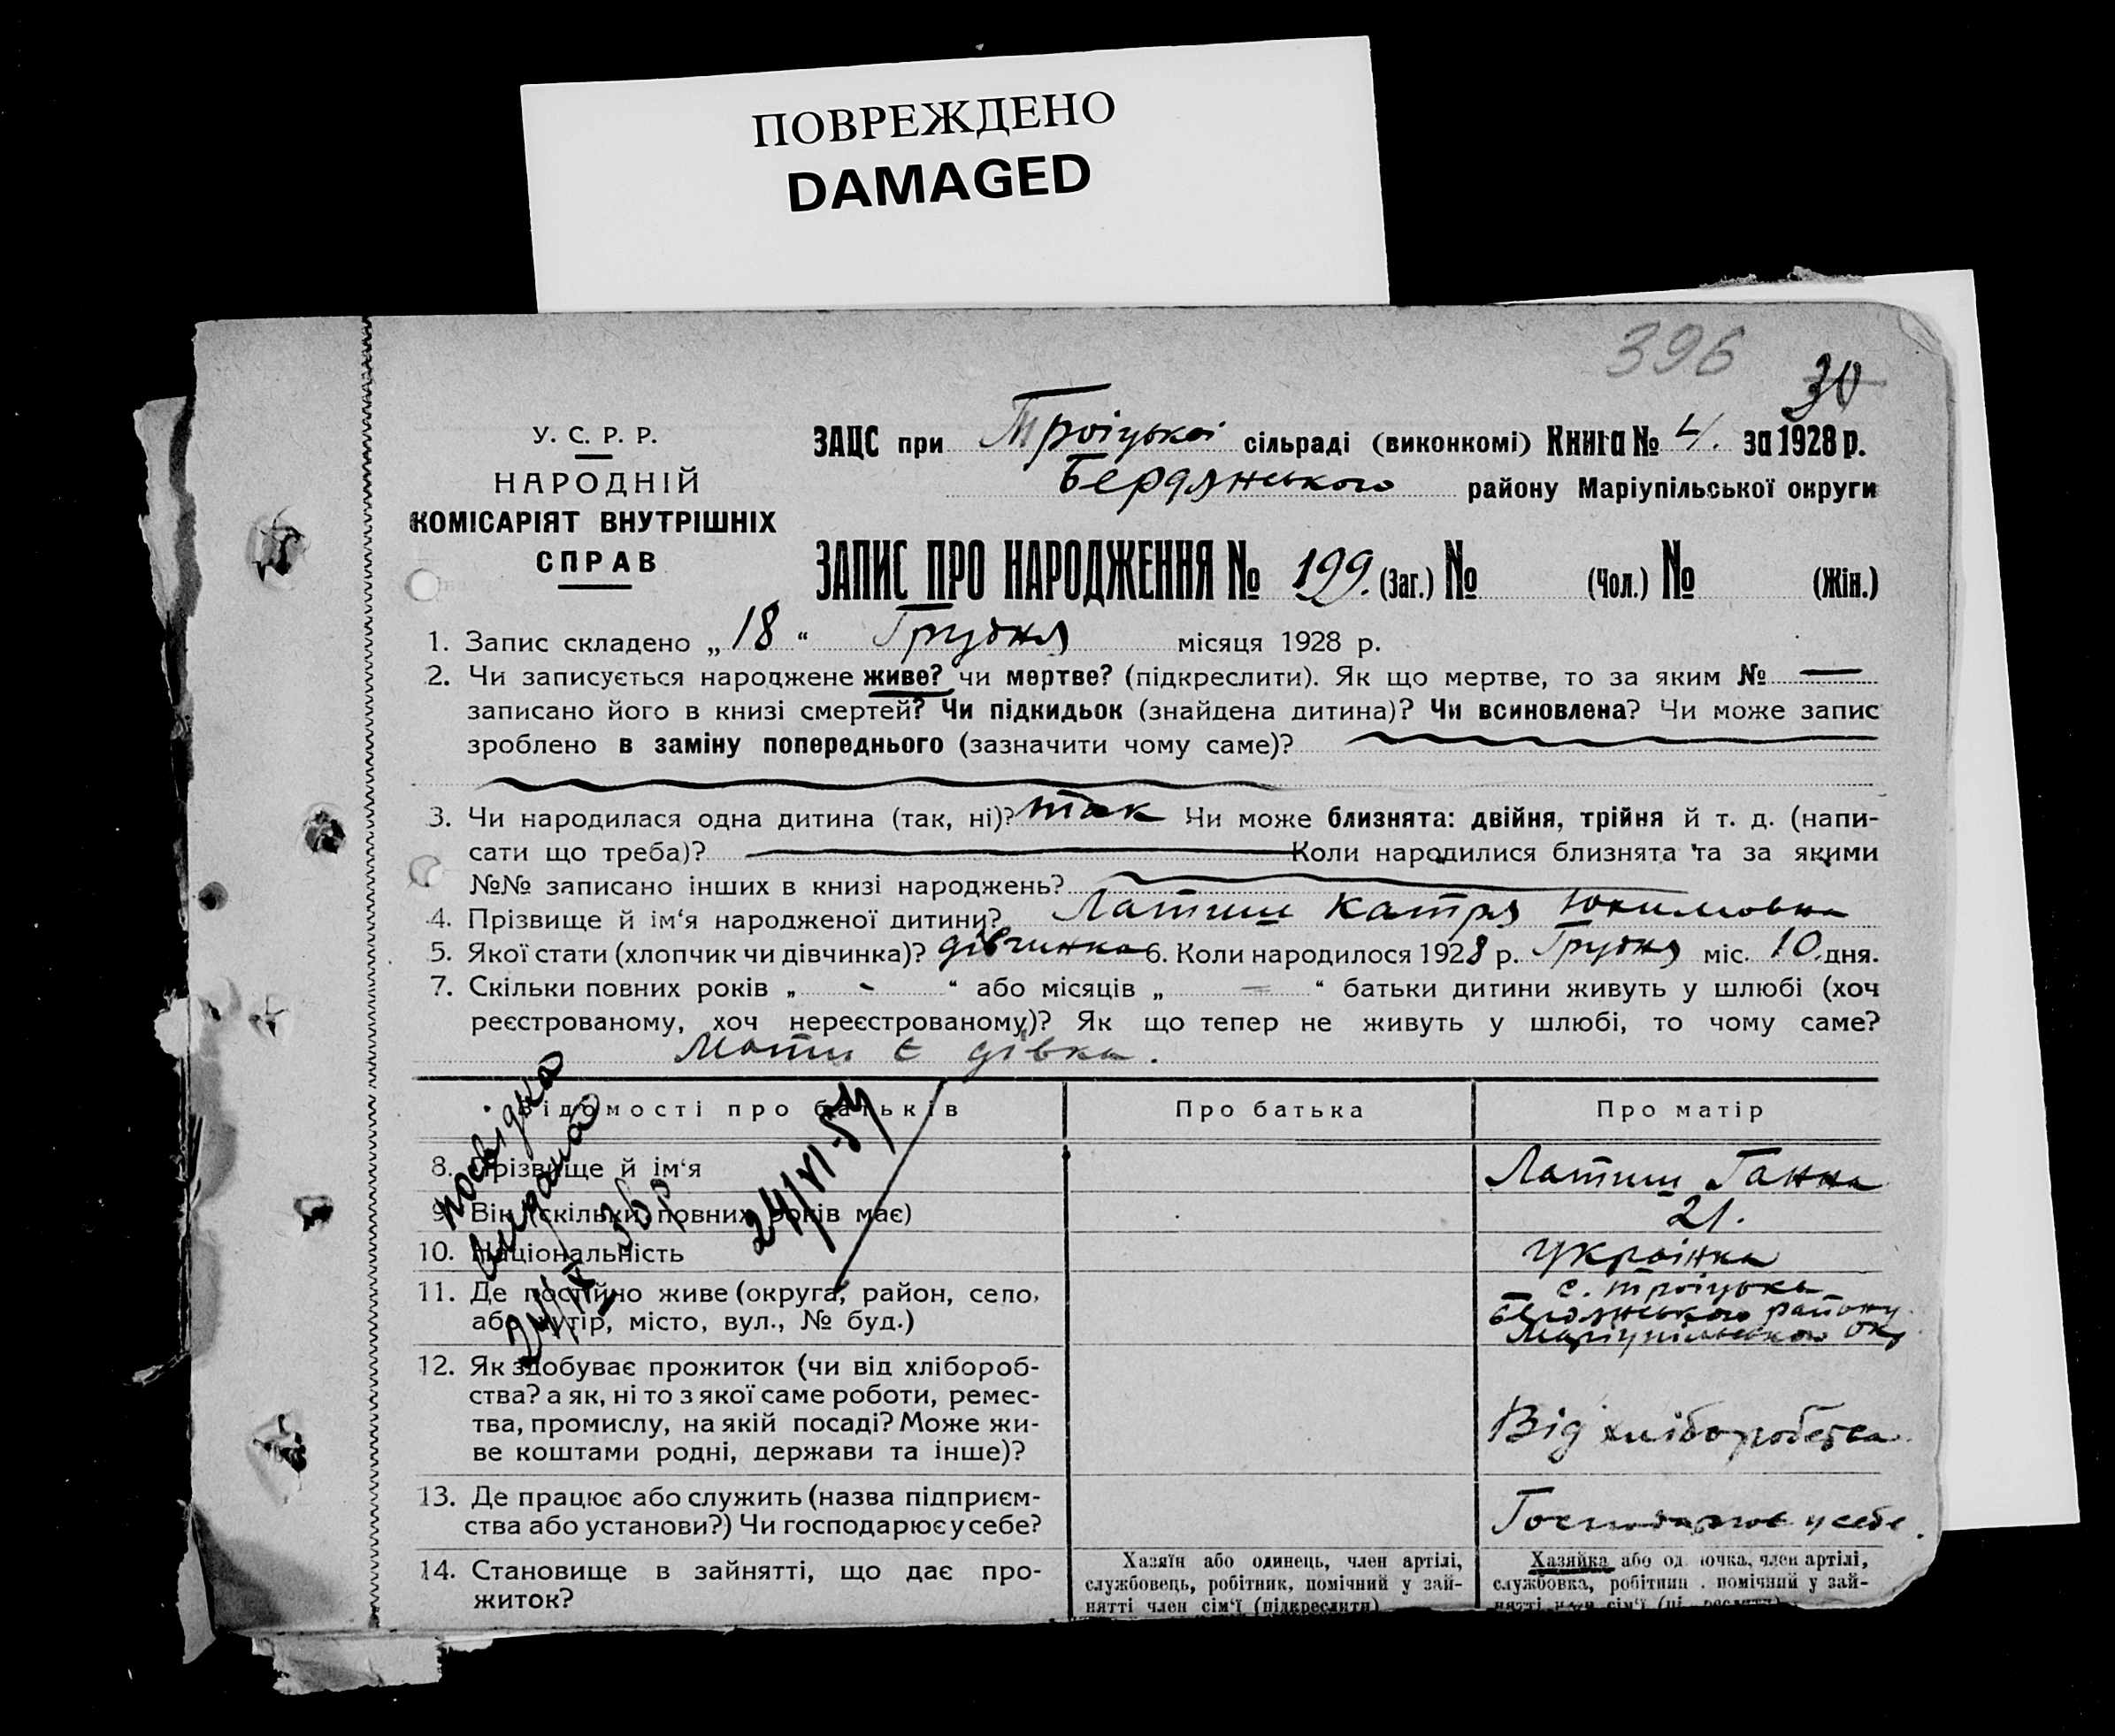 ПОВРЕЖДЕНО
DAMAGED
396
30
У. С. Р. Р.
НАРОДНІЙ
КОМІСАРІЯТ ВНУТРІШНІХ
СПРАВ
ЗАЦС при Троіцькоі сільраді (виконкомі) Книга № 4. за 1928 р.
Бердянського району Маріупільської округи
ЗАПИС ПРО НАРОДЖЕННЯ № 199. (Заг.) № (Чол.) № (Жін.)
1. Запис складено „ 18 “ Грудня місяця 1928 р.
2. Чи записується народжене живе? чи мертве? (підкреслити). Як що мертве, то за яким № —
записано його в книзі смертей? Чи підкидьок (знайдена дитина)? Чи всиновлена? Чи може запис
зроблено в заміну попереднього (зазначити чому саме)?
3. Чи народилася одна дитина (так, ні)? так Чи може близнята: двійня, трійня й т. д. (напи-
сати що треба)? Коли народилися близнята та за якими
№№ записано інших в книзі народжень?
4. Прізвище й ім‘я народженої дитини? Латиш Катря Юхимовна
5. Якої стати (хлопчик чи дівчинка)? дівчинка 6. Коли народилося 1928 р. Грудня міс. 10. дня.
7. Скільки повних років „ - “ або місяців „ = “ батьки дитини живуть у шлюбі (хоч
реєстрованому, хоч нереєстрованому)? Як що тепер не живуть у шлюбі, то чому саме?
Мати є дівка.
Відомості про батьків
Про батька
Про матір
8. Прізвище й ім‘я
Латиш Ганна
9. Вік (скільки повних років має)
21.
10. Національність
Українка
11. Де постійно живе (округа, район, село,
або хутір, місто, вул., № буд.)
с. Троіцьке
Бердянського району
Маріупільської ок.
12. Як здобуває прожиток (чи від хлібороб-
ства? а як, ні то з якої саме роботи, ремес-
тва, промислу, на якій посаді? Може жи-
ве коштами родні, держави та інше)?
Від хліборобства
13. Де працює або служить (назва підприєм-
ства або установи?) Чи господарює у себе?
Господарює у себе.
14. Становище в зайнятті, що дає про-
житок?
Хазяїн або одинець, член артілі,
службовець, робітник, помічний у зай-
нятті член сім‘ї (підкреслити)
Хазяйка або од иочка, член артілі,
службовка, робітниц , помічний у зай-
посвідка
видана
24/IX 36 р
24/VI-54